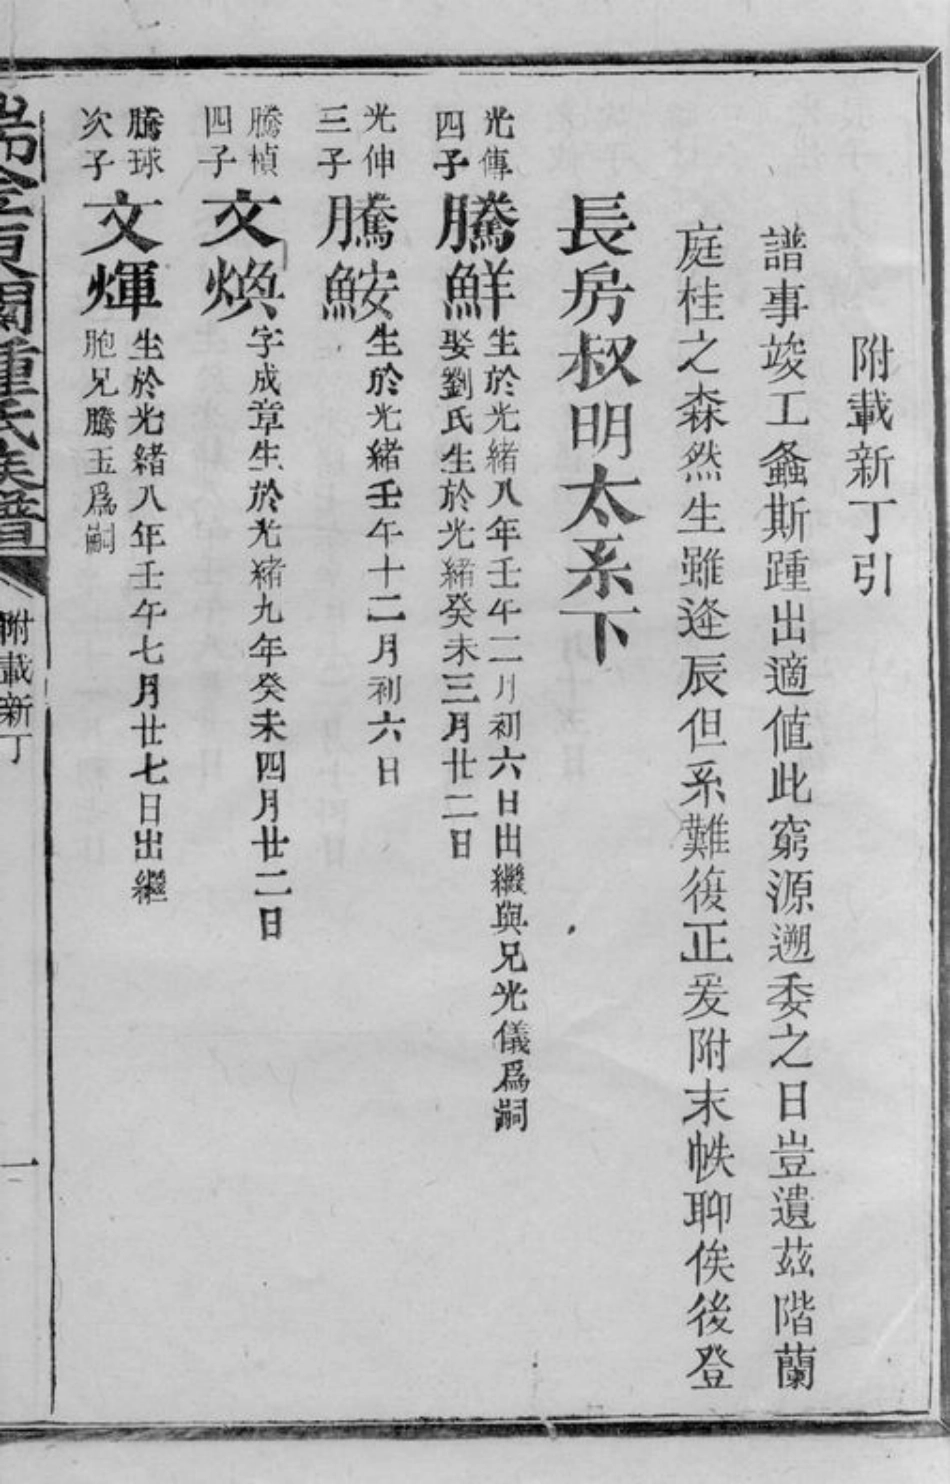 附載新丁引
譜事竣工螽斯踵出適値此窮源遡委之日豈遺茲階蘭
庭桂之森然生雖逢辰但系難復正爰附末帙聊俟後登
長房叔明太系下
光傳
四子
騰鮮
生於光緒八年壬午二月初六日出繼與兄光儀爲嗣
娶劉氏生於光緒癸未三月廿二日
光伸
三子
騰鮟
生於光緒壬午十二月初六日
騰楨
四子
文煥
字成章生於光緒九年癸未四月廿二日
騰球
次子
文煇
生於光緒八年壬午七月廿七日出繼
胞兄騰玉爲嗣
瑞金東關鍾氏族譜
附載新丁
一